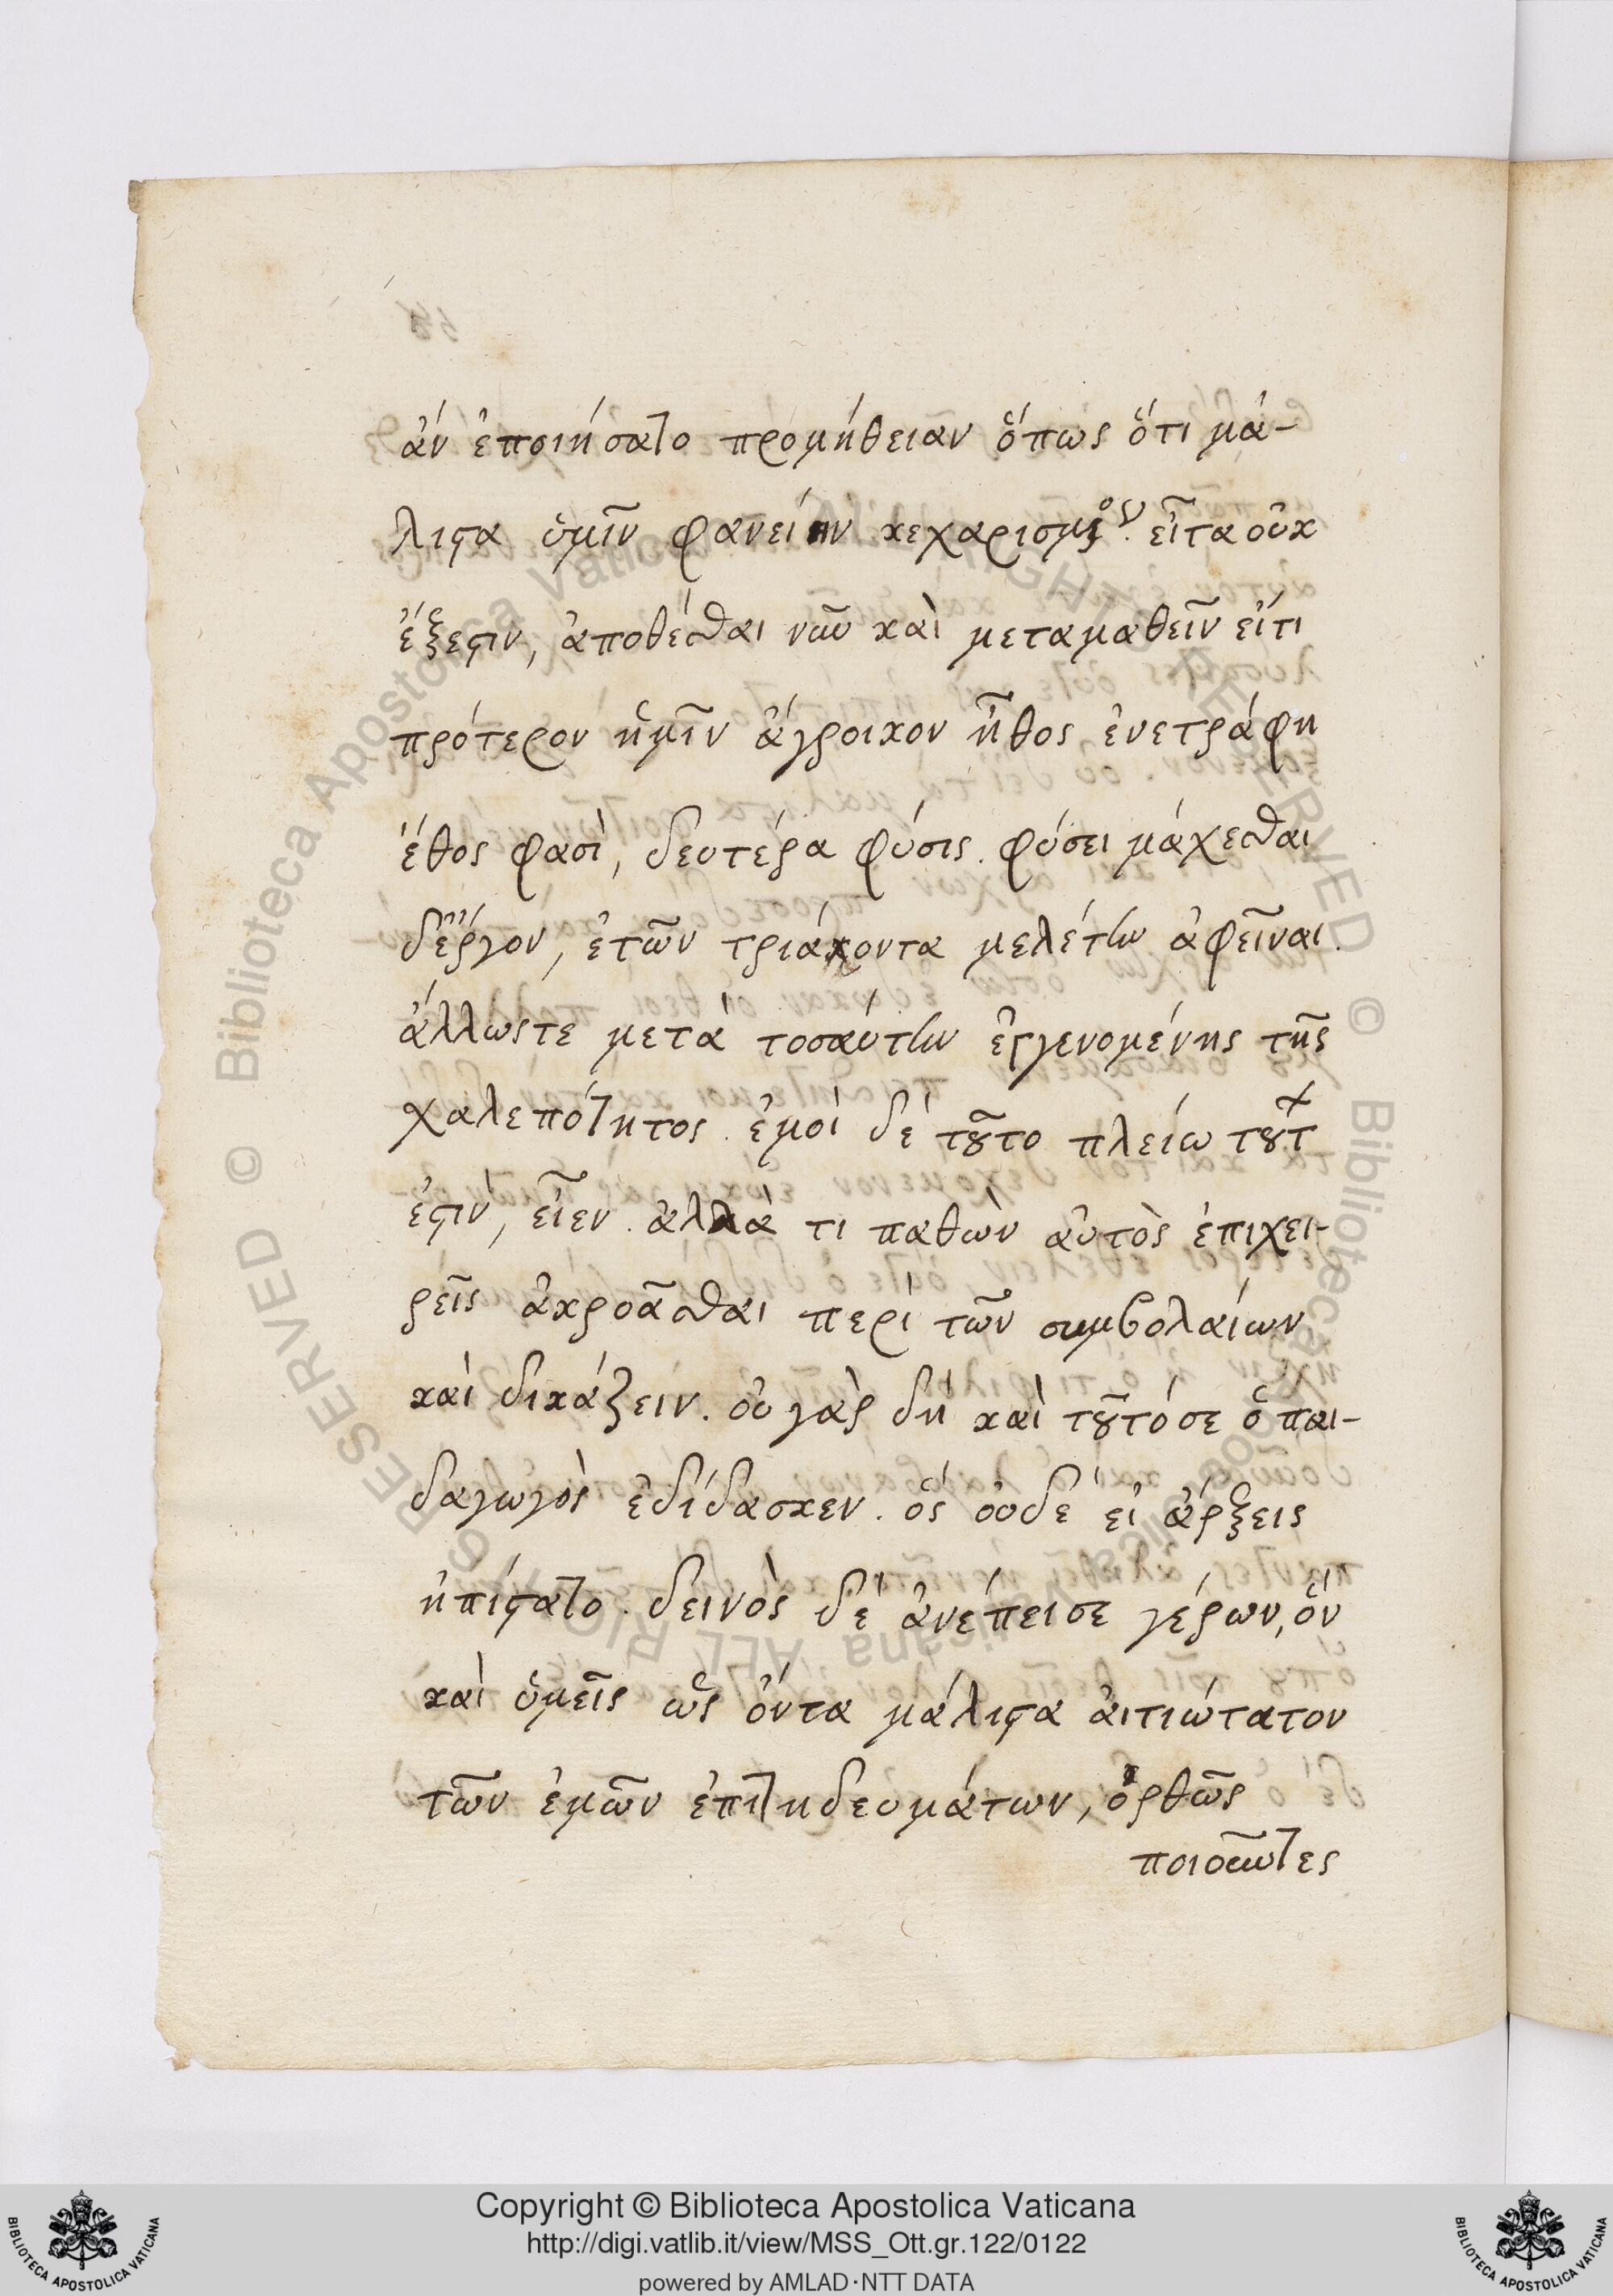 ἀν ἐποιήσατο προμήθειαν ὅπως ὅτι μά-
λιϛα ὑμῖν φανείην κεχαρισμέον. εἶτα οὐκ
ἔξεϛιν, ἀποθέσθαι νῦν καὶ μεταμαθεῖν εἴτι
πρότερον ἡμῖν ἄγροικον ἦθος ἐνετράφη
ἔθος φασὶ, δευτέρα φύσις. φύσει μάχεσθαι
δ'ἔργον, ἐτῶν τριάκοντα μελέτην ἀφεῖναι.
ἄλλωςτε μετὰ τοσαύτην ἐγγενομένης τῆς
χαλεπότητος. ἐμοὶ δὲ τȣ͂το πλείω τȣ́τ
ἐϛιν, εἶεν. ἀλλά τι παθὼν αὐτὸς ἐπιχει-
ρεῖς ἀκροᾶσθαι περὶ τῶν συμβολαίων
καὶ δικάζειν. οὐ γὰρ δὴ καὶ τȣ͂τό σε ὁ παι-
δαγωγὸς ἐδίδασκεν. ὃς οὐδὲ εἰ ἄρξεις
ἠπίϛατο. δεινὸς δὲ ἀνέπεισε γέρων, ὃν
καὶ ὑμεῖς ὡς ὄντα μάλιϛα ἀιτιώτατον
τῶν ἐμῶν ἐπιτηδευμάτων, ὀρθῶς
ποιοῦντες
Biblioteca Apostolica Vaticana ALL RIGHTS RESERVED ©
Biblioteca Apostolica Vaticana ALL RIGHTS RESERVED ©
Copyright © Biblioteca Apostolica Vaticana
http://digi.vatlib.it/view/MSS_Ott.gr.122/0122
powered by AMLAD·NTT DATA
BIBLIOTECA APOSTOLICA VATICANA
BIBLIOTECA APOSTOLICA VATICANA